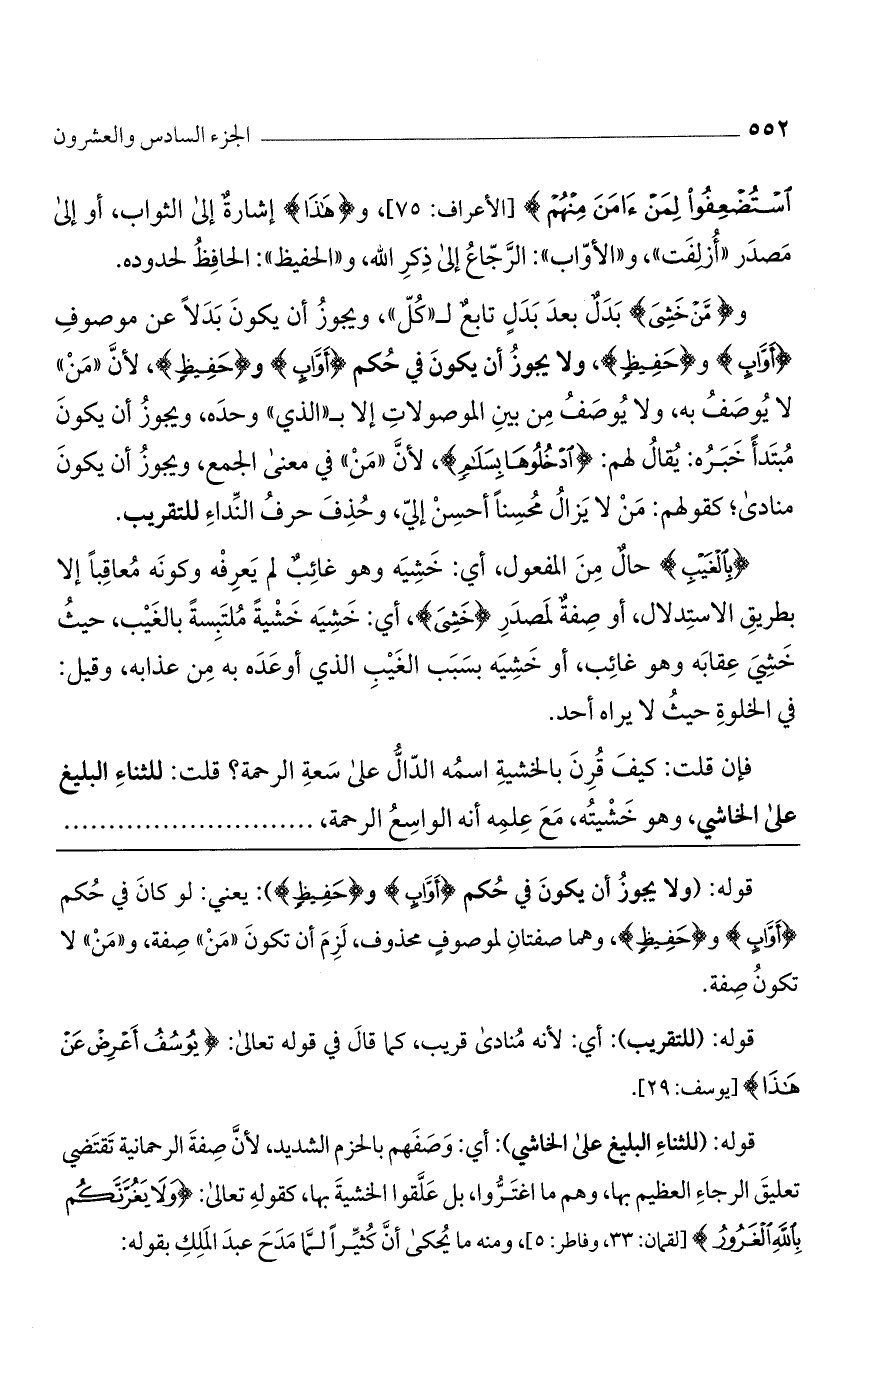 ٥٥٢ الجزء السادس والعشرون
ٱسۡتُضۡعِفُواْ لِمَنۡ ءَامَنَ مِنۡهُمۡ﴾ [الأعراف: ٧٥]، و﴿هَٰذَا﴾ إشارةٌ إلىٰ الثواب، أو إلىٰ
مَصدَر «أُزلِفَت»، و«الأوّاب»: الرَّجّاعُ إلىٰ ذِكرِ الله، و«الحفيظ»: الحافِظُ لحدوده.
و﴿مَّنۡ خَشِىَ﴾ بَدَلٌ بعدَ بَدَلٍ تابعٌ لـ«كُلّ»، ويجوزُ أن يكونَ بَدَلاً عن موصوفِ
﴿أَوَّابٍ﴾ و﴿حَفِيظٍ﴾، ولا يجوزُ أن يكونَ في حُكم ﴿أَوَّابٍ﴾ و﴿حَفِيظٍ﴾، لأنَّ «مَنْ»
لا يُوصَفُ به، ولا يُوصَفُ مِن بينِ الموصولاتِ إلا بـ«الذي» وحدَه، ويجوزُ أن يكونَ
مُبتَدأً خَبَرُه: يُقالُ لهم: ﴿ٱدۡخُلُوهَا بِسَلَٰمٍ﴾، لأنَّ «مَنْ» في معنىٰ الجمع، ويجوزُ أن يكونَ
منادىٰ؛ كقولهم: مَنْ لا يَزالُ مُحسِناً أحسِنْ إليّ، وحُذِفَ حرفُ النِّداءِ للتقريب.
﴿بِٱلۡغَيۡبِ﴾ حالٌ مِنَ المفعول، أي: خَشِيَه وهو غائِبٌ لم يَعرِفْه وكونَه مُعاقِباً إلا
بطريقِ الاستِدلال، أو صِفةٌ لمصدَرِ ﴿خَشِىَ﴾، أي: خَشِيَه خَشْيةً مُلتَبِسةً بالغَيْب، حيثُ
خَشِيَ عِقابَه وهو غائِب، أو خَشِيَه بسَبَب الغَيْبِ الذي أوعَدَه به مِن عذابه، وقيل:
في الخلوةِ حيثُ لا يراه أحد.
فإن قلت: كيفَ قُرِنَ بالخشيةِ اسمُه الدّالُّ علىٰ سَعةِ الرحمة؟ قلت: للثناءِ البليغ
علىٰ الخاشي، وهو خَشْيتُه، مَعَ عِلمِه أنه الواسِعُ الرحمة، ............................
قوله: (ولا يجوزُ أن يكونَ في حُكم ﴿أَوَّابٍ﴾ و﴿حَفِيظٍ﴾): يعني: لو كانَ في حُكم
﴿أَوَّابٍ﴾ و﴿حَفِيظٍ﴾، وهما صفتانِ لموصوفٍ محذوف، لَزِمَ أن تكونَ «مَنْ» صِفة، و«مَنْ» لا
تكونُ صِفة.
قوله: (للتقريب): أي: لأنه مُنادىٰ قريب، كما قالَ في قوله تعالىٰ: ﴿يُوسُفُ أَعۡرِضۡ عَنۡ
هَٰذَا﴾ [يوسف: ٢٩].
قوله: (للثناءِ البليغ علىٰ الخاشي): أي: وَصَفَهم بالحزم الشديد، لأنَّ صِفةَ الرحمانية تَقتَضي
تعليقَ الرجاءِ العظيم بها، وهم ما اغتَرُّوا، بل عَلَّقوا الخشيةَ بها، كقولهِ تعالىٰ: ﴿وَلَا يَغُرَّنَّكُم
بِٱللَّهِ ٱلۡغَرُورُ﴾ [لقمان: ٣٣، وفاطر: ٥]، ومنه ما يُحكىٰ أنَّ كُثيِّراً لـمَّا مَدَحَ عبدَ المَلِكِ بقوله: